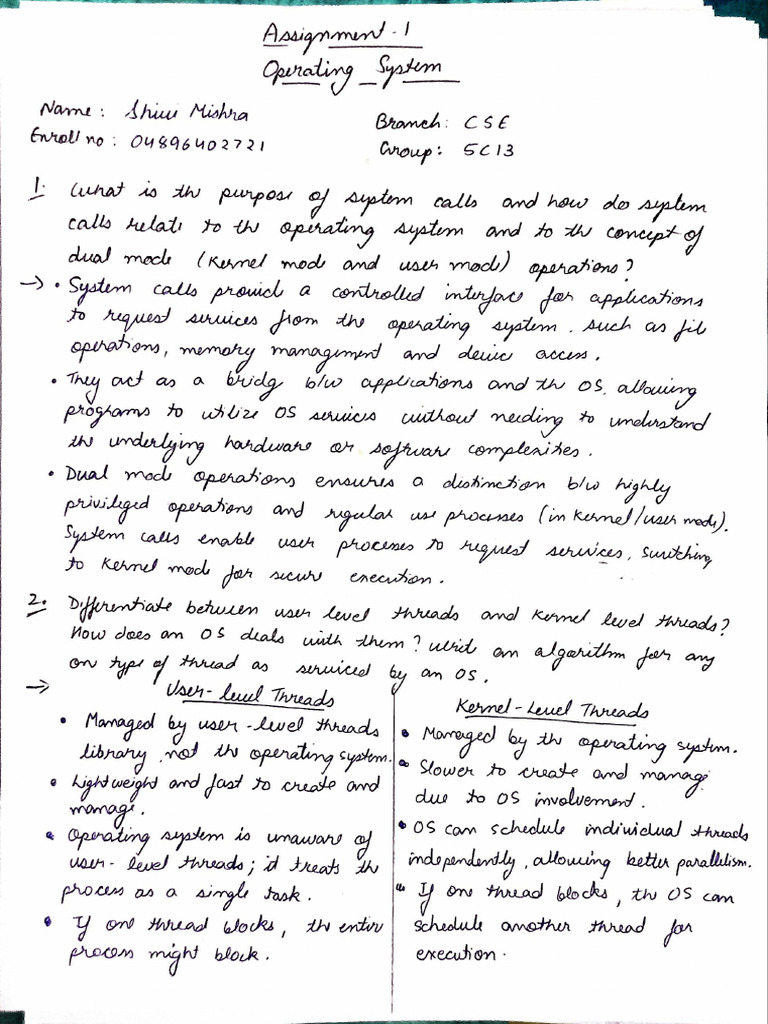 Assignment - 1
Operating System
Name: Shivi Mishra
Branch: CSE
Enroll no: 04896402721
Group: 5C13
1. What is the purpose of system calls and how do system
calls relate to the operating system and to the concept of
dual mode (kernel mode and user mode) operations?
→ • System calls provide a controlled interface for applications
to request services from the operating system. such as file
operations, memory management and device access.
• They act as a bridge b/w applications and the OS, allowing
programs to utilize OS services without needing to understand
the underlying hardware or software complexities.
• Dual mode operations ensures a distinction b/w highly
privileged operations and regular use processes (in Kernel/user mode).
System calls enable user processes to request services, switching
to Kernel mode for secure execution.
2. Differentiate between user level threads and Kernel level threads?
How does an OS deals with them? Write an algorithm for any
on type of thread as serviced by an OS.
→ User-level Threads
• Managed by user-level threads
library, not the operating system.
• Lightweight and fast to create and
manage.
• Operating system is unaware of
user-level threads; it treats the
process as a single task.
• If one thread blocks, the entire
process might block.
Kernel-Level Threads
• Managed by the operating system.
• Slower to create and manage
due to OS involvement.
• OS can schedule individual threads
independently, allowing better parallelism.
• If one thread blocks, the OS can
schedule another thread for
execution.